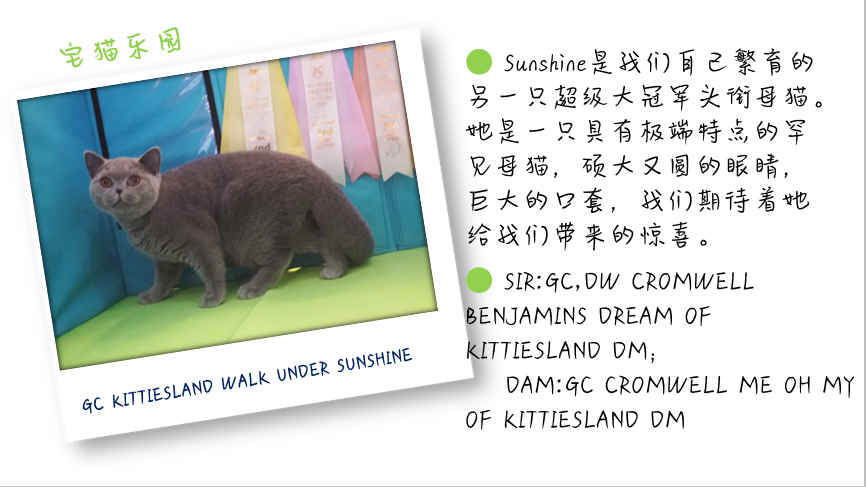 宅猫乐园
2nd
3rd
GC KITTIESLAND WALK UNDER SUNSHINE
Sunshine是我们自己繁育的
另一只超级大冠军头衔母猫。
她是一只具有极端特点的罕
见母猫，硕大又圆的眼睛，
巨大的口套，我们期待着她
给我们带来的惊喜。
SIR:GC,DW CROMWELL
BENJAMINS DREAM OF
KITTIESLAND DM;
DAM:GC CROMWELL ME OH MY
OF KITTIESLAND DM